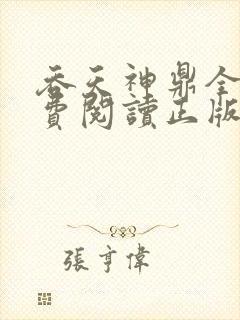 吞天神鼎全
費閱讀正版
張亨偉